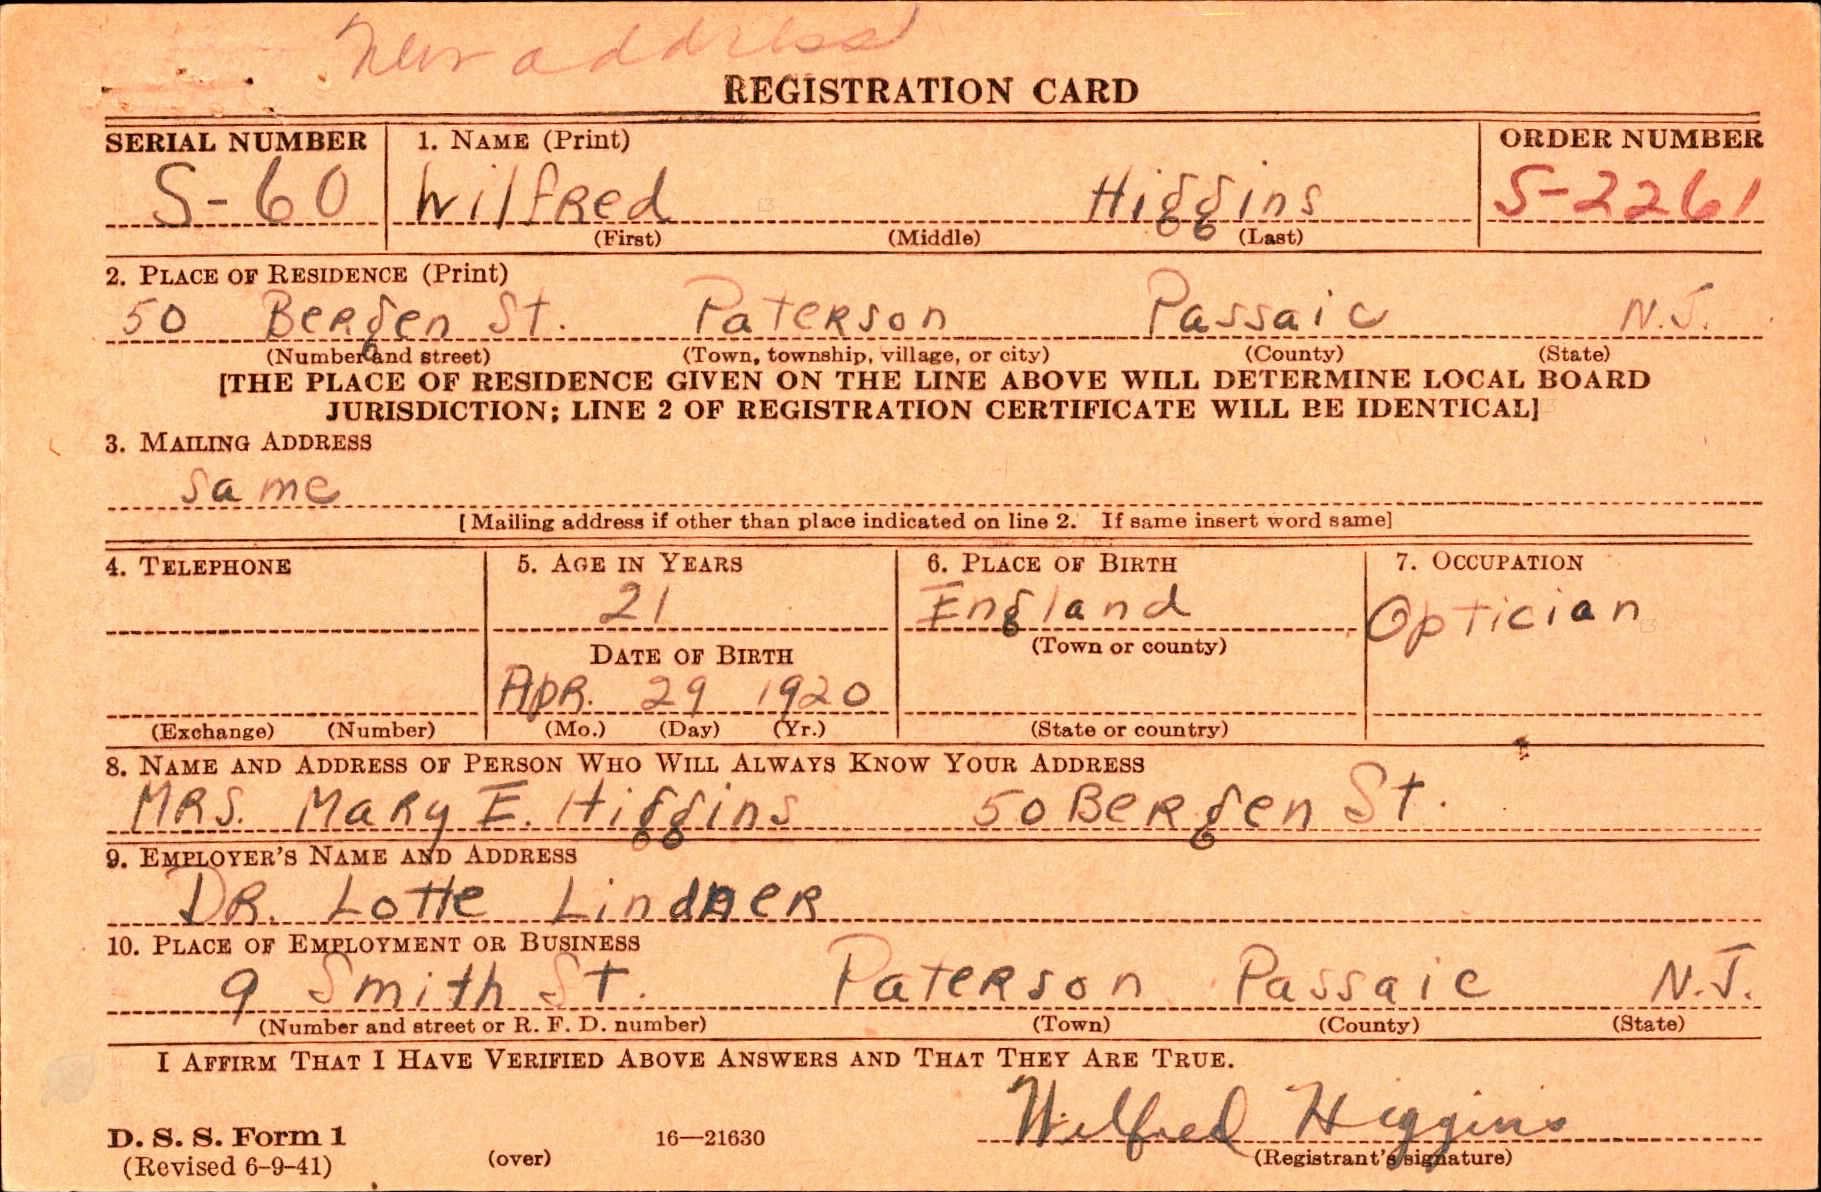 New address
REGISTRATION CARD
SERIAL NUMBER 1. NAME (Print) ORDER NUMBER
S-60 Wilfred Higgins S-2261
(First) (Middle) (Last)
2. PLACE OF RESIDENCE (Print)
50 Bergen St. Paterson Passaic N.J.
(Number and street) (Town, township, village, or city) (County) (State)
[THE PLACE OF RESIDENCE GIVEN ON THE LINE ABOVE WILL DETERMINE LOCAL BOARD
JURISDICTION; LINE 2 OF REGISTRATION CERTIFICATE WILL BE IDENTICAL]
3. MAILING ADDRESS
same
[Mailing address if other than place indicated on line 2. If same insert word same]
4. TELEPHONE 5. AGE IN YEARS 6. PLACE OF BIRTH 7. OCCUPATION
21 England Optician
DATE OF BIRTH (Town or county)
Apr. 29 1920
(Exchange) (Number) (Mo.) (Day) (Yr.) (State or country)
8. NAME AND ADDRESS OF PERSON WHO WILL ALWAYS KNOW YOUR ADDRESS
MRS. Mary E. Higgins 50 Bergen St.
9. EMPLOYER'S NAME AND ADDRESS
DR. Lotte Lindner
10. PLACE OF EMPLOYMENT OR BUSINESS
9 Smith St. Paterson Passaic N.J.
(Number and street or R. F. D. number) (Town) (County) (State)
I AFFIRM THAT I HAVE VERIFIED ABOVE ANSWERS AND THAT THEY ARE TRUE.
Wilfred Higgins
D. S. S. Form 1 16—21630
(Revised 6-9-41) (over) (Registrant's signature)